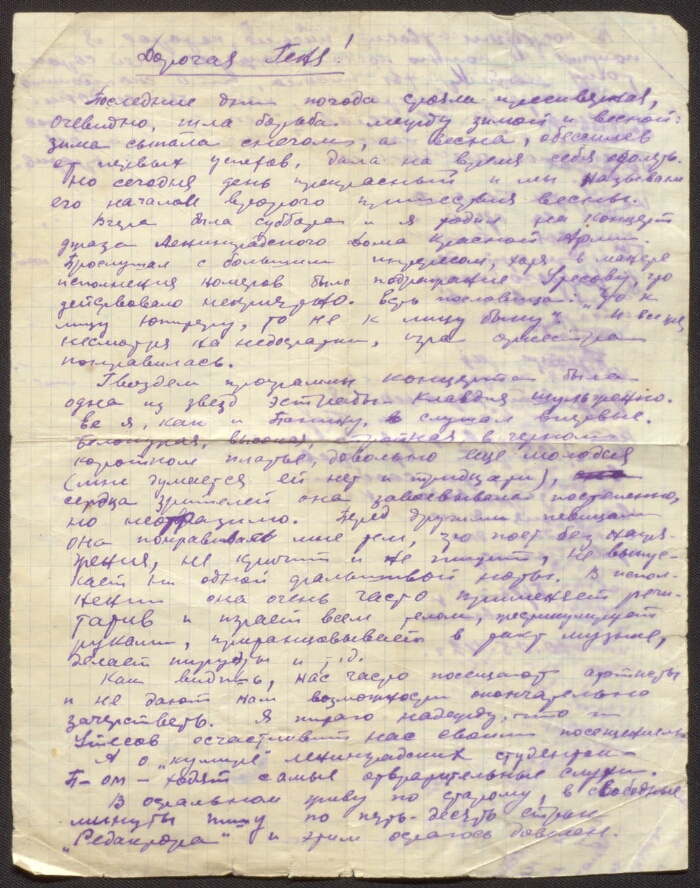 Дорогая Геня!
Последние дни погода стояла пресквевная,
очевидно, шла борьба между зимой и весной:
зима сыпала снегом, а весна, обессилев
от первых успехов, дала на время себя
Но сегодня день прекрасный и мы назывем
его началом второго пришествия весны.
Вчера была суббота и я ходил на концерт
джаза Ленинградского Дома Красной Армии.
Прослушал с большим интересом, хотя в манере
исполнения номеров было подражание Утесову, что
действовало неприятно. Есть пословица: "Что к
лицу Юпитеру, то не к лицу быку". И все же,
несмотря на недостатки, игра оркестра
понравилась.
Гвоздем программы концерта была
одна из звезд эстрады Клавдия Шульженко.
Ее я, как и слушал впервые.
Белокурая, высокая, статная в черном
коротком платье, довольно еще молодая
(мне думается ей нет и тридцати),
сердца зрителей она завоевывала постепенно,
но неотразимо. Перед другими певицами
она понравилась мне тем, что поет без напря-
жения, не кричит и не пищит, не выпус-
кает ни одной фальшивой ноты. В испол-
нении она очень часто применяет речи-
татив и играет всем телом, жестикулирует
руками, пританцовывает в такт музыке,
делает пируэты и т.д.
Как видишь, нас часто посещают артисты
и не дают нам возможности окончательно
зачерстветь. Я питаю надежду, что и
Утесов осчастливит нас своим посещением.
А о "кумире" ленинградских студенток
Б-ом - ходят самые отвратительные слухи.
В остальном живу по старому, в свободные
минуты пишу по пять-десять строк
"Редактора" и этим остаюсь доволен.